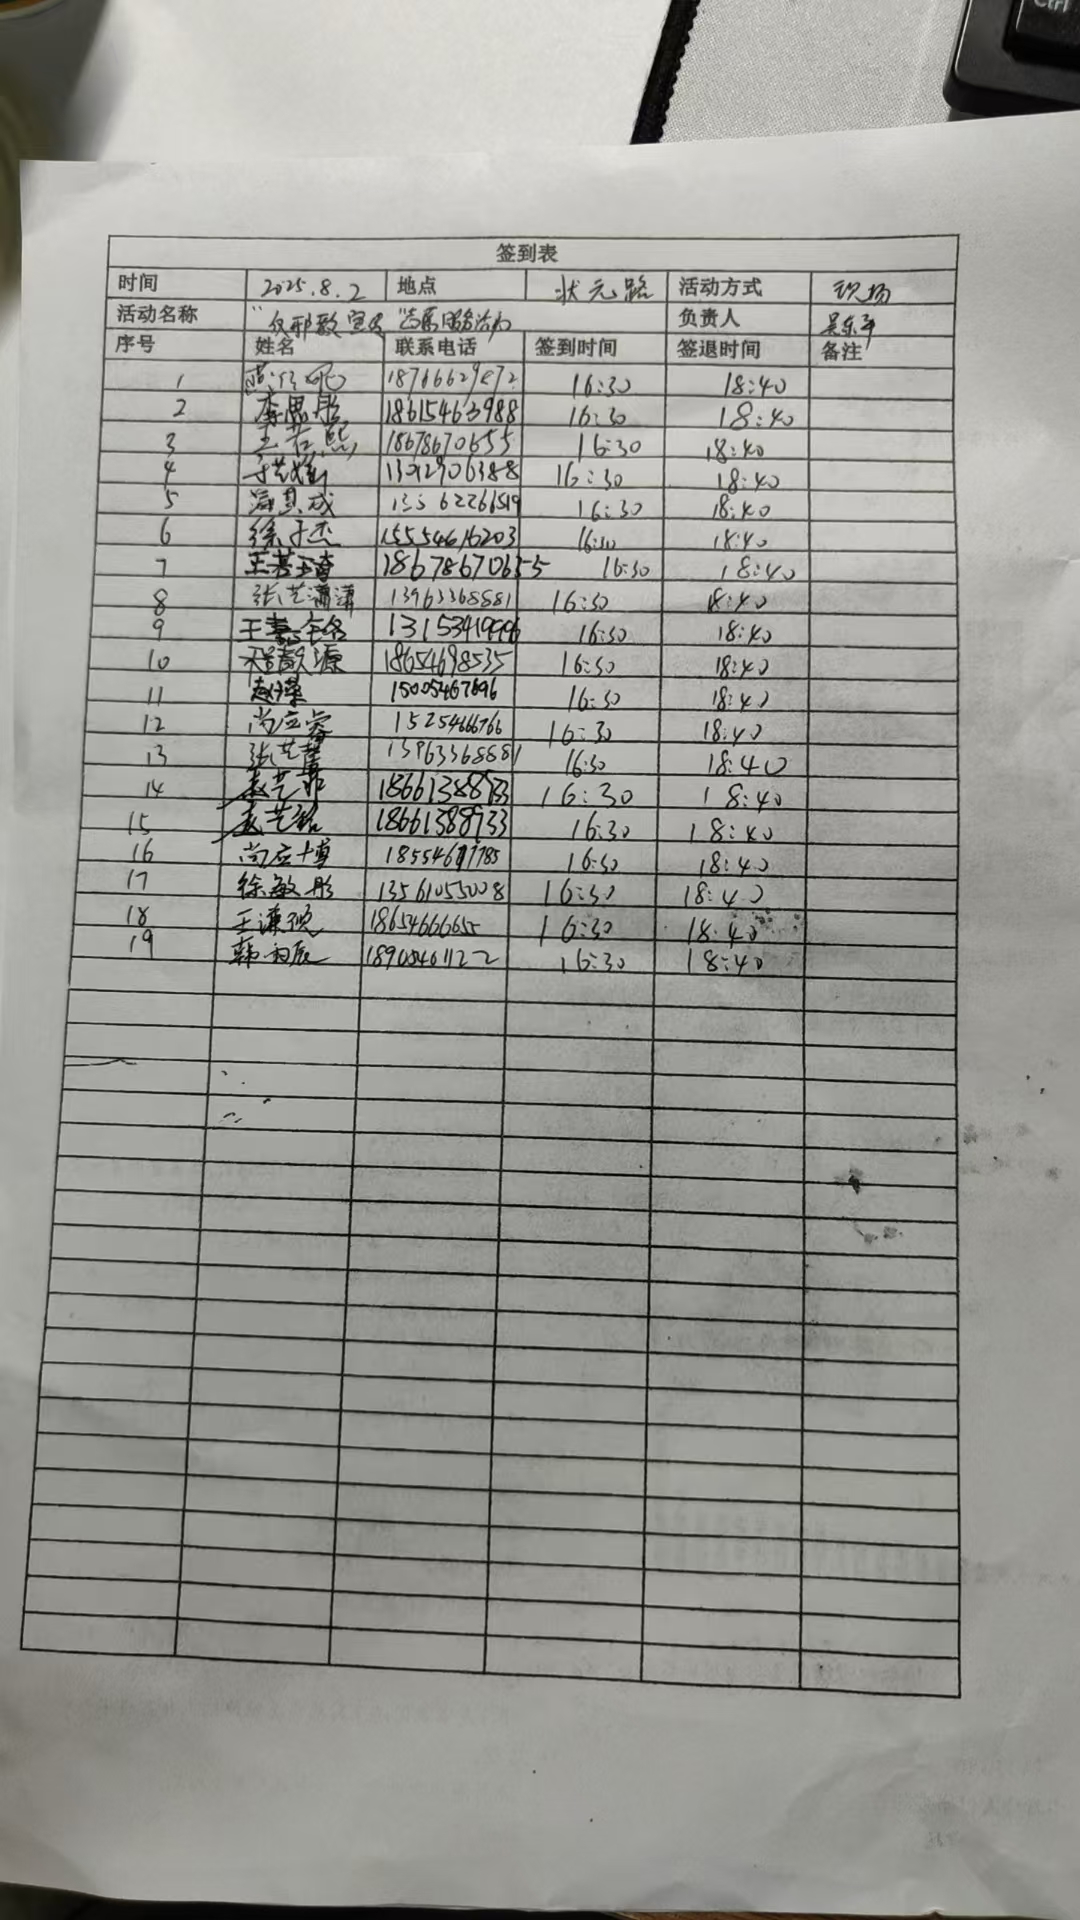 Ctrl
签到表
时间 2025.8.2 地点 状元路 活动方式 现场
活动名称 "反邪教宣传"志愿服务活动 负责人 吴东平
序号 姓名 联系电话 签到时间 签退时间 备注
1 16:30 18:40
2 李思彤 18615463988 16:30 18:40
3 王若熙 18678670655 16:30 18:40
4 16:30 18:40
5 16:30 18:40
6 徐子杰 15554616203 16:30 18:40
7 18678670655 16:30 18:40
8 张艺潇潇 13963368881 16:30 18:40
9 16:30 18:40
10 18654698535 16:30 18:40
11 15005467696 16:30 18:40
12 尚应蓉 15254666766 16:30 18:40
13 张艺馨 13963368881 16:30 18:40
14 18661388933 16:30 18:40
15 18661388933 16:30 18:40
16 尚应博 16:30 18:40
17 徐敏彤 13561055008 16:30 18:40
18 18654666655 16:30 18:40
19 16:30 18:40